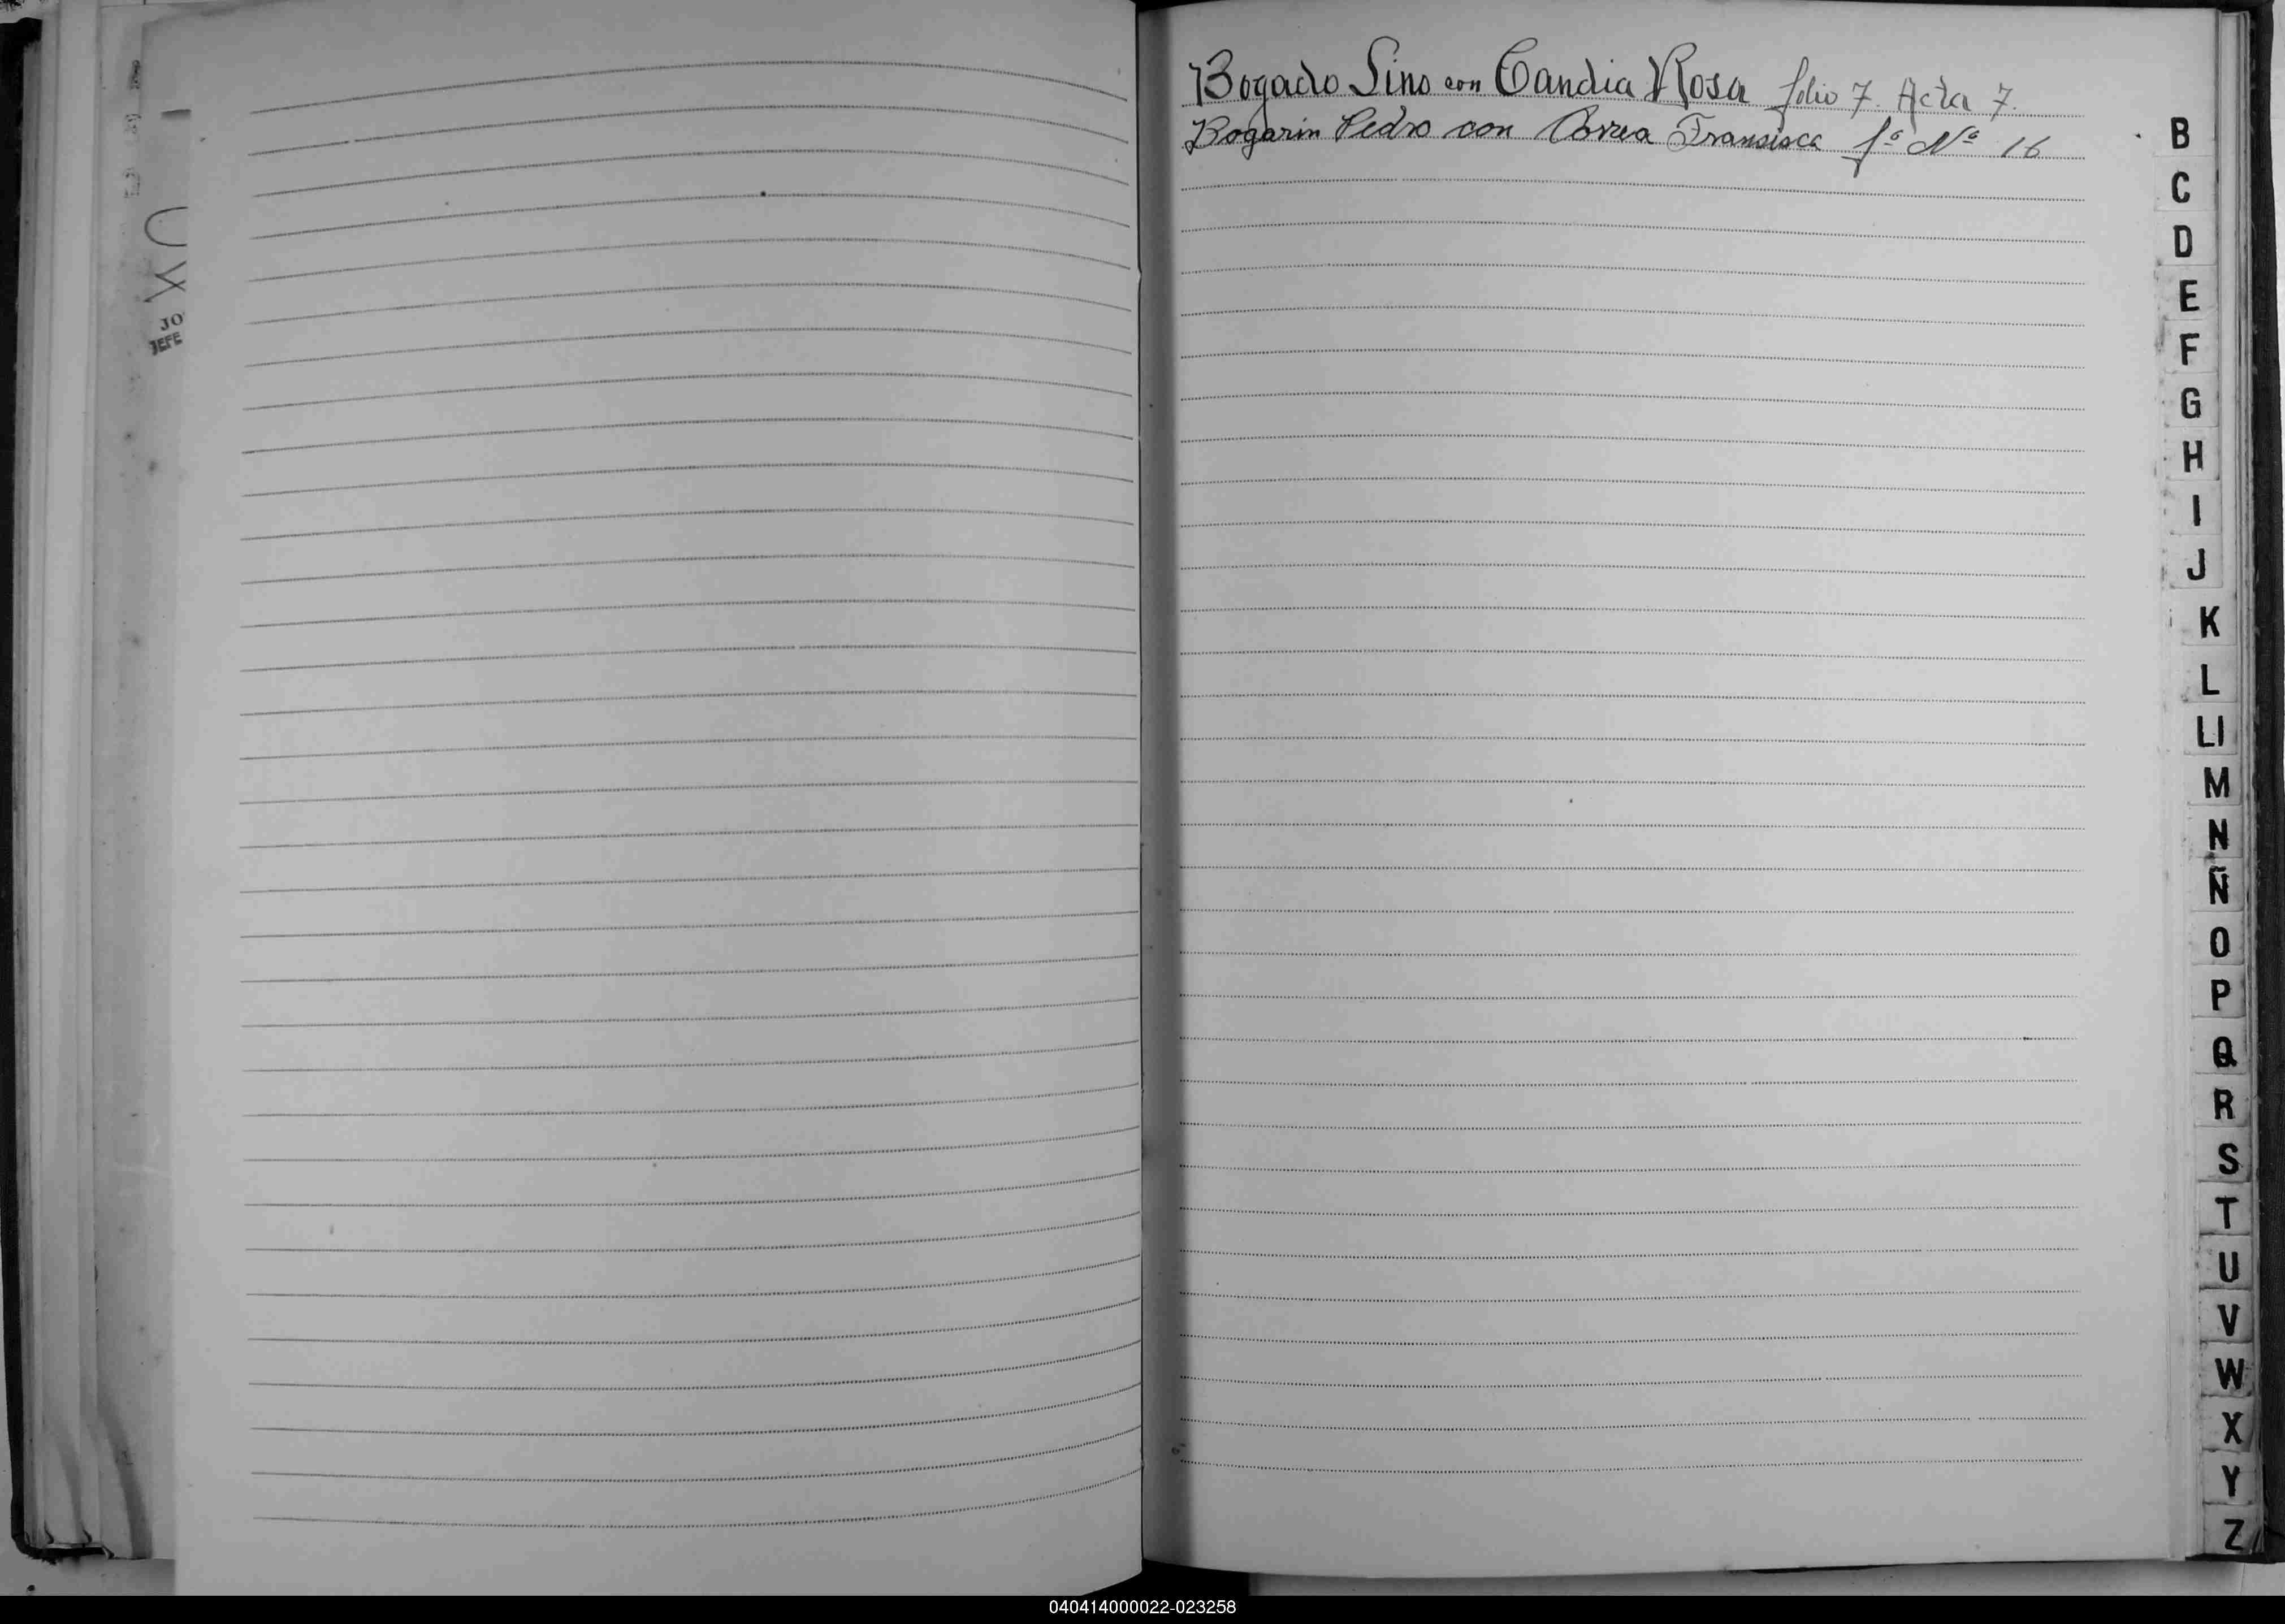 Bogado Lino con Candia Rosa folio 7. Acta 7.
Bogarin Pedro con Correa Fransisca fº Nº 16
B
C
D
E
F
G
H
I
J
K
L
Ll
M
N
Ñ
O
P
Q
R
S
T
U
V
W
X
Y
Z
JEFE
040414000022-023258